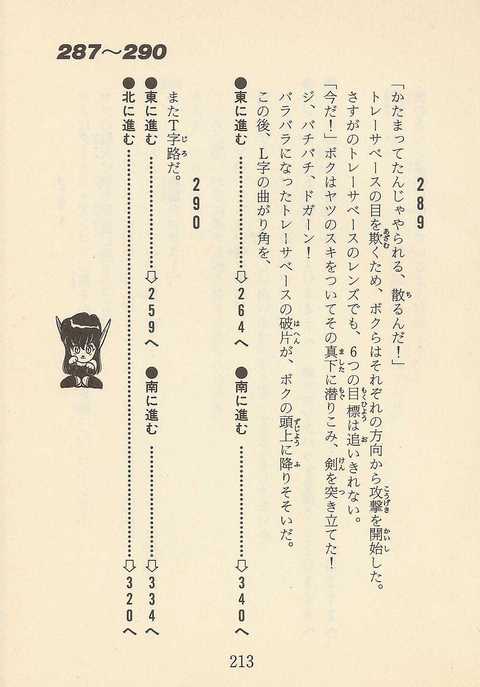 287〜290
289
「かたまってたんじゃやられる、散るんだ!」
トレーサベースの目を欺くため、ボクらはそれぞれの方向から攻撃を開始した。
さすがのトレーサベースのレンズでも、6つの目標は追いきれない。
「今だ!」ボクはヤツのスキをついてその真下に潜りこみ、剣を突き立てた!
ジ、バチバチ、ドガーン!
バラバラになったトレーサベースの破片が、ボクの頭上に降りそそいだ。
この後、L字の曲がり角を、
●東に進む⇨264へ ●南に進む⇨340へ
290
またT字路だ。
●東に進む⇨259へ ●南に進む⇨334へ
●北に進む⇨320へ
213